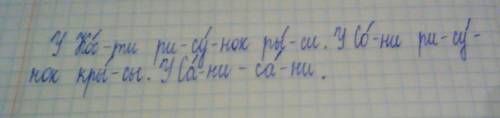 У Ко́с-ти ри-су́-нок ры́-си. У Со́-ни ри-су́-
нок кры́-сы. У Са́-ни - са́-ни.